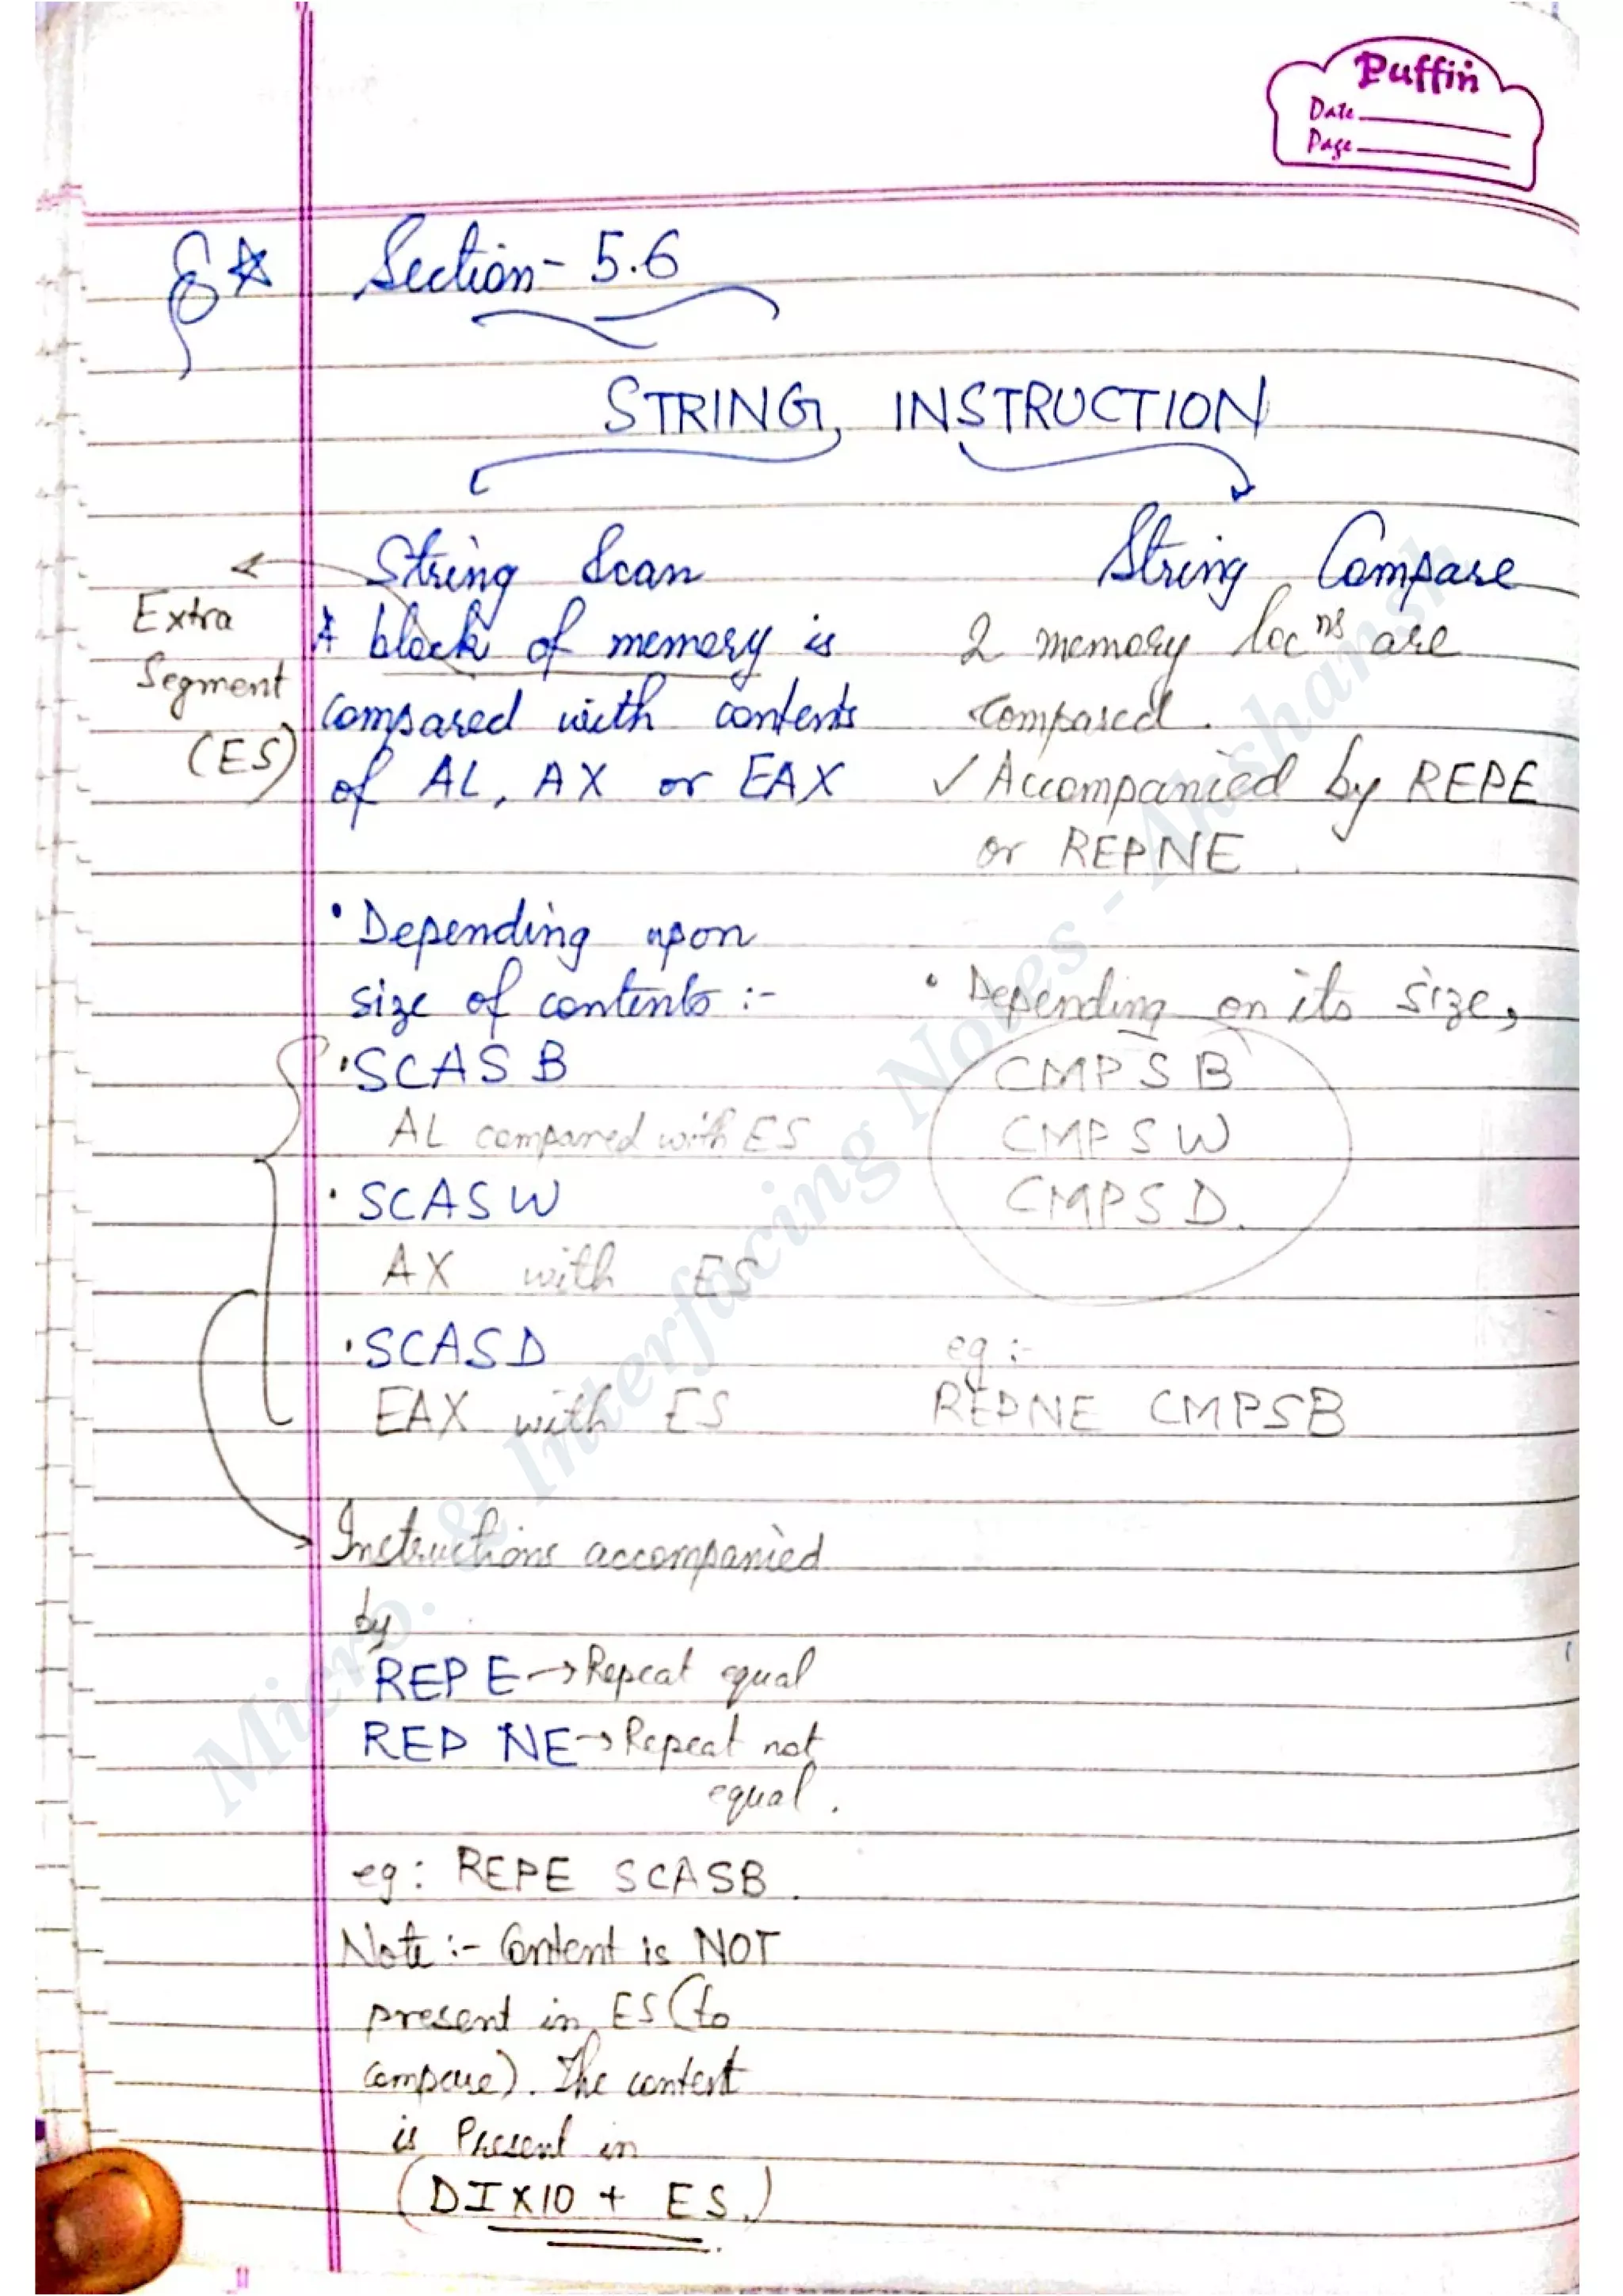 Puffin
Date
Page
Section - 5.6
STRING INSTRUCTION
String Scan
A block of memory is
compared with contents
of AL, AX or EAX
Extra
Segment
(ES)
• Depending upon
size of contents :-
• SCASB
AL compared with ES
• SCASW
AX with ES
• SCASD
EAX with ES
Instructions accompanied
by
REPE → Repeat equal
REPNE → Repeat not
equal.
eg: REPE SCASB.
Note :- Content is NOT
present in ES (to
compare). The content
is Present in
(DI×10 + ES.)
String Compare
2 memory locns are
compared.
✓ Accompanied by REPE
or REPNE
• Depending on its size,
CMPSB
CMPSW
CMPSD.
eg :-
REPNE CMPSB
Micro. & Interfacing Notes - Akshansh